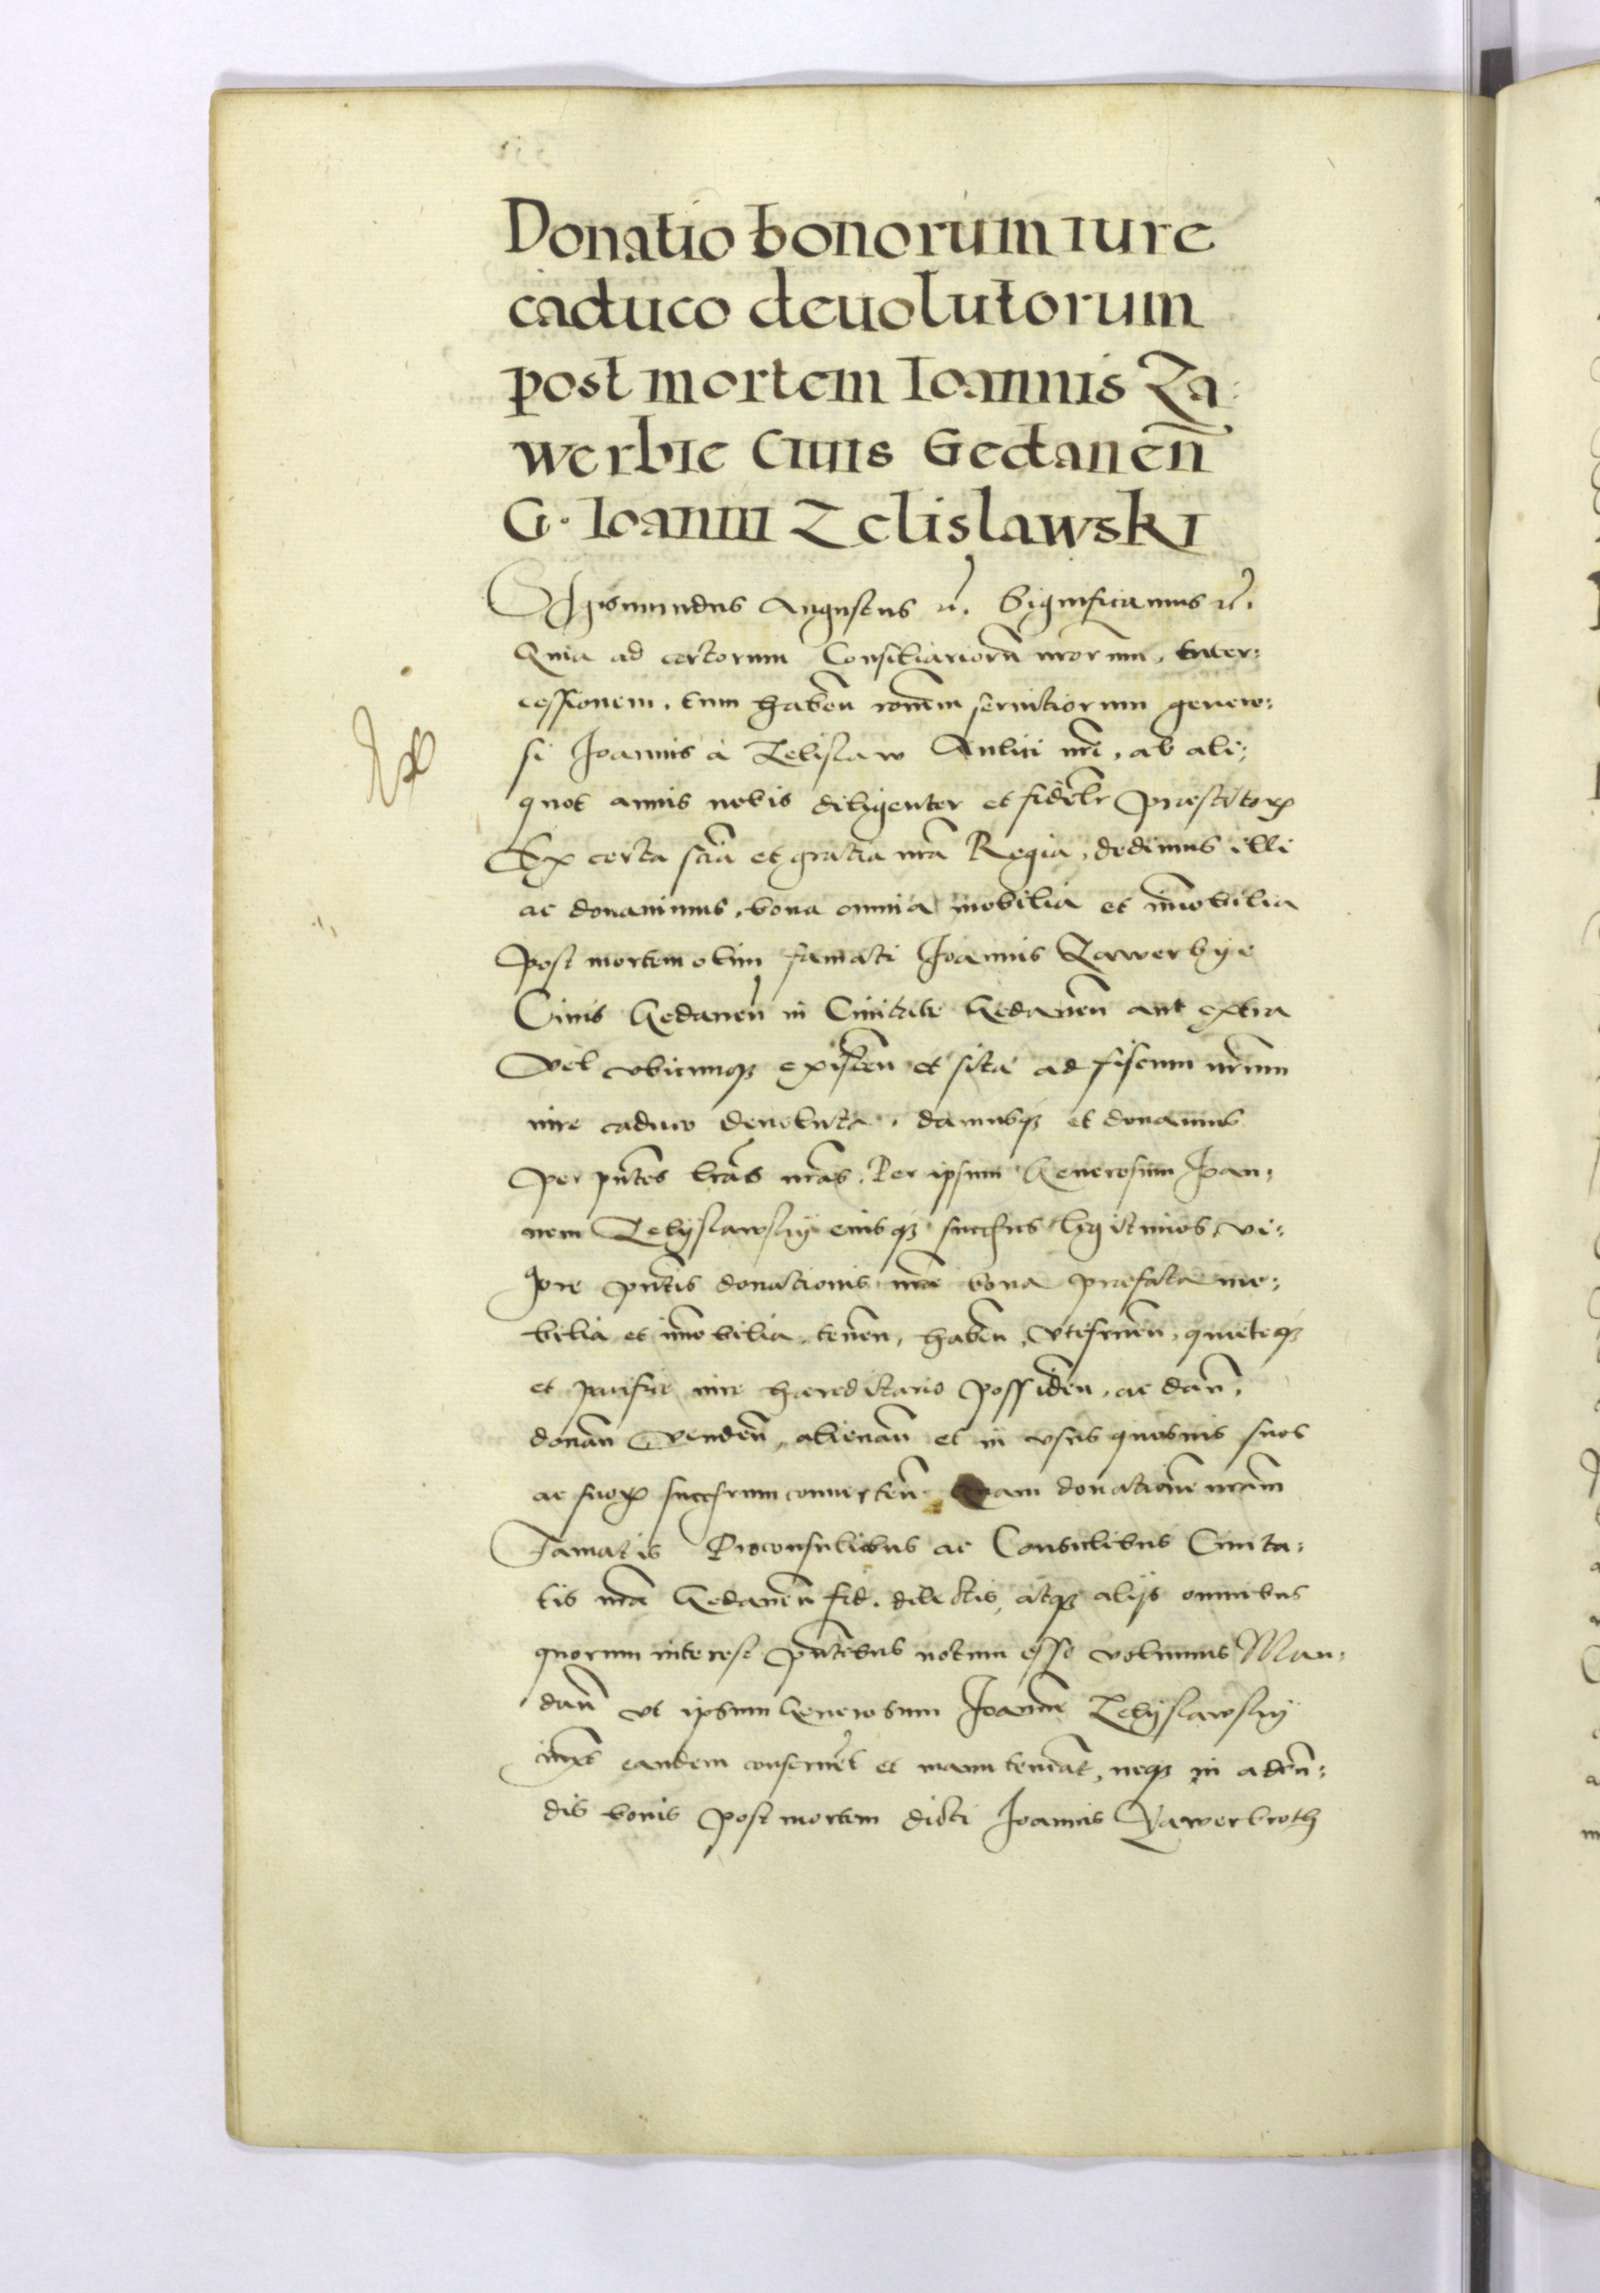 Donatio bonorum iure
caduco deuolutorum
post mortem Ioannis Za-
werbie ciuis Gedaneñ
G. Ioanni Zelislawski
Sigismundus Augustus ꝛc̃. Significamus ꝛc̃.
Quia ad certorum Consiliariorũ nrorum, inter:
cessionem, tum habeñ rõnem seruitiorum genero:
si Ioannis à Zelislaw Aulici nrĩ, ab ali:
quot annis nobis diligenter et fidelr̃ praestitoꝝ
Ex certa sciã et gratia nrã Regia, dedimus illi
ac donauimus, bona omnia mobilia et im̃obilia
post mortem olim famati Ioannis Zawerbye
Ciuis Gedaneñ in Ciuitate Gedaneñ aut extra
vel vbicunqꝫ existeñ et sita ad fiscum nrũm
iure caduco deuoluta, damusqꝫ et donamus
per pñtes lrãs nrãs. Per ipsum Generosum Ioan:
nem Zelyslawsky eiusqꝫ succẽs legitimos, vi:
gore pñtis donationis nrẽ bona praefata mo:
bilia et im̃obilia, teneñ, habeñ, vtifrueñ, quieteqꝫ
et pacifice iure haereditario possideñ, ac dañ,
donañ vendeñ, alienañ et in vsus quosuis suos
ac suoꝝ succẽrum conuerteñ. Quam donationẽ nrãm
Famatis Proconsulibus ac Consulibus Ciuita:
tis nrẽ Gedaneñ fid. dilectis, atqꝫ alijs omnibus
quorum interest pñtibus notum esse volumus Man:
dañ vt ipsum Generosum Ioannẽ Zelyslawsky
iuxta eandem conseruet et manuteneat, neqꝫ in adeũ:
dis bonis post mortem dicti Ioannis Zawerbroth